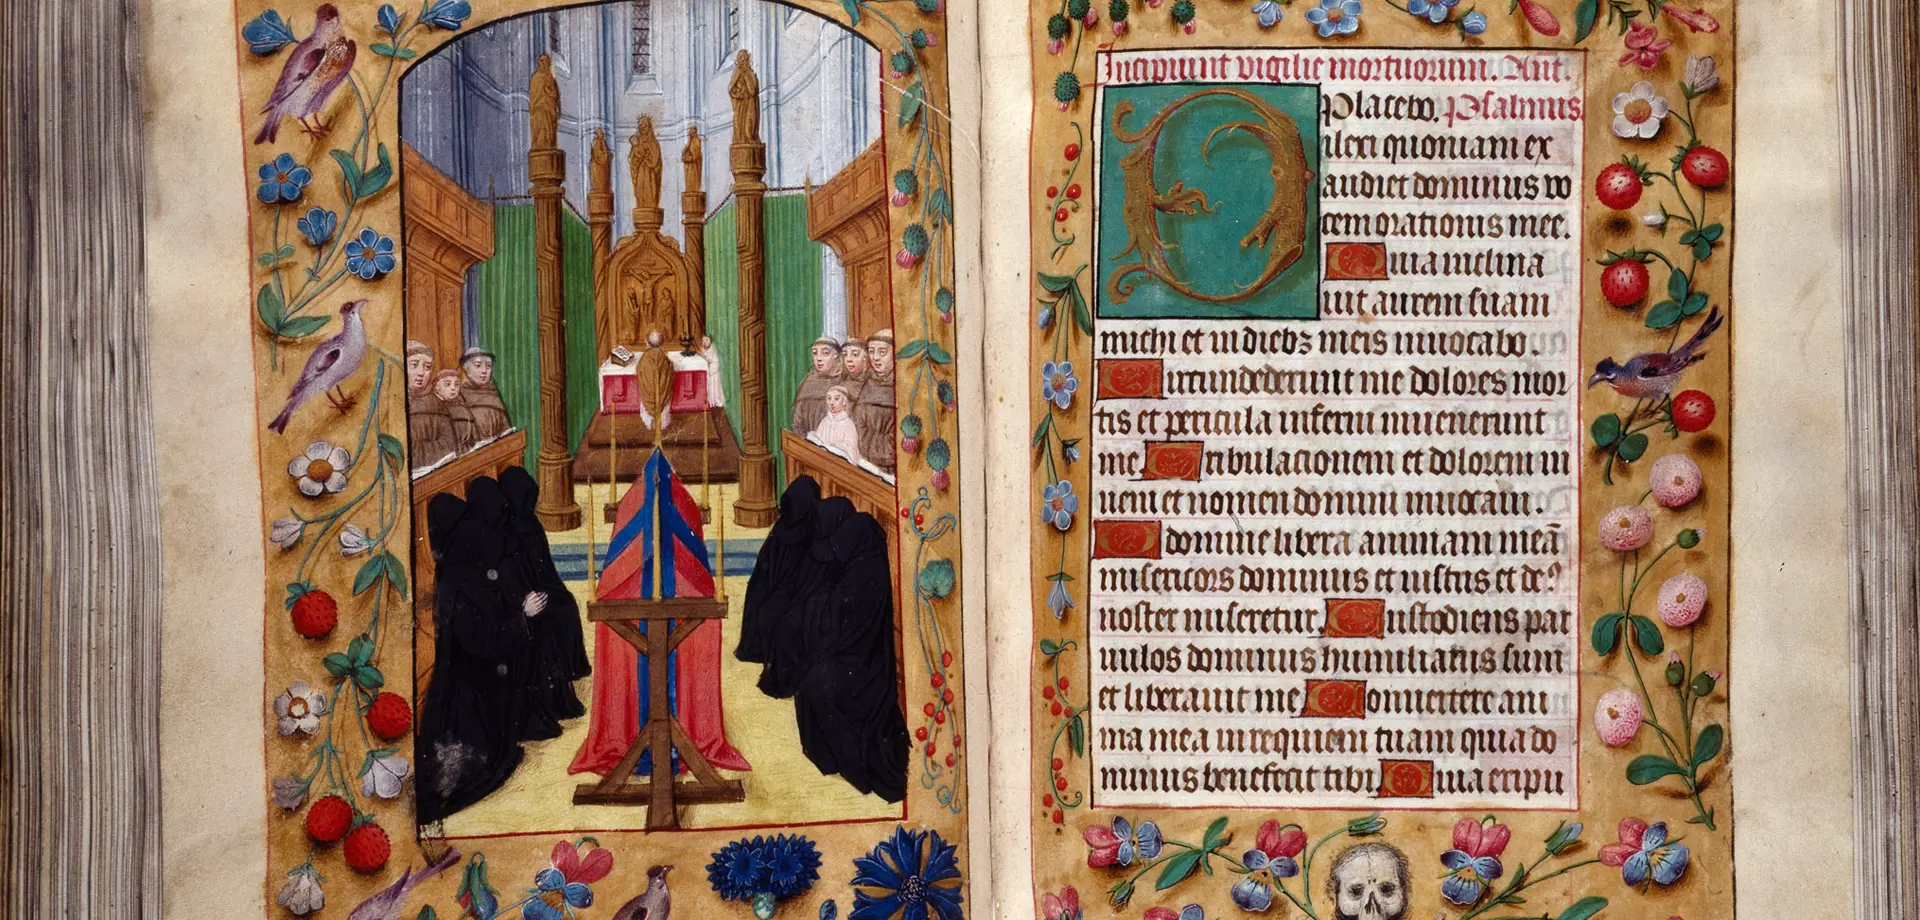 Incipiunt vigilie mortuorum. Ant.
Placebo. Psalmus.
Dilexi quoniam ex
audiet dominus vo
cem orationis mee.
Quia inclina
uit aurem suam
michi et in diebꝫ meis inuocabo.
Circundederunt me dolores mor
tis et pericula inferni inuenerunt
me Tribulacionem et dolorem in
ueni et nomen domini inuocaui.
O domine libera animam meā
misericors dominus et iustus et deꝰ
noster miseretur. Custodiens par
uulos dominus humiliatus sum
et liberauit me Conuertere ani
ma mea in requiem tuam quia do
minus benefecit tibi Quia eripu